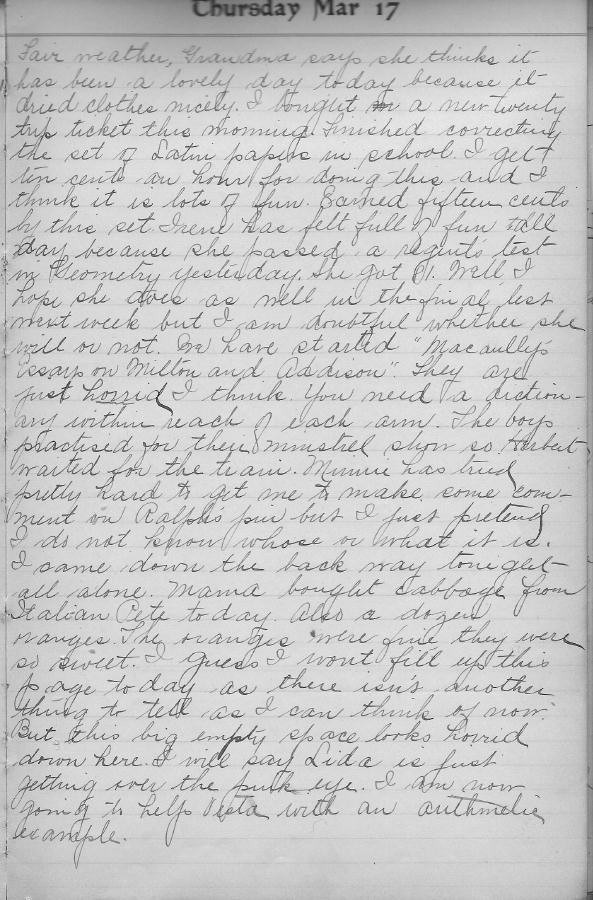 Thursday Mar 17
Fair weather, Grandma says she thinks it
has been a lovely day today because it
dried clothes nicely. I bought a new twenty
trip ticket this morning. Finished correcting
the set of Latin papers in school. I get
ten cents an hour for doing this and I
think it is lots of fun. Earned fifteen cents
by this set. Irene has felt full of fun all
day because she passed a regents test
in Geometry yesterday. She got 81. Well I
hope she does as well in the final test
next week but I am doubtful whether she
will or not. We have started "Macaully's
Essays on Milton and Addison". They are
just horrid I think. You need a diction-
ary within reach of each arm. The boys
practised for their minstrel show so Herbert
waited for the train. Minnie has tried
pretty hard to get me to make some com-
ment on Ralph's pin but I just pretend
I do not know whose or what it is.
I came down the back way tonight
all alone. Mama bought cabbage from
Italian Pete today. Also a dozen
oranges. The oranges were fine they were
so sweet. I guess I wont fill up this
page today as there isn't another
thing to tell as I can think of now.
But this big empty space looks horrid
down here. I will say Lida is just
getting over the pink eye. I am now
going to help Vista with an arithmetic
example.